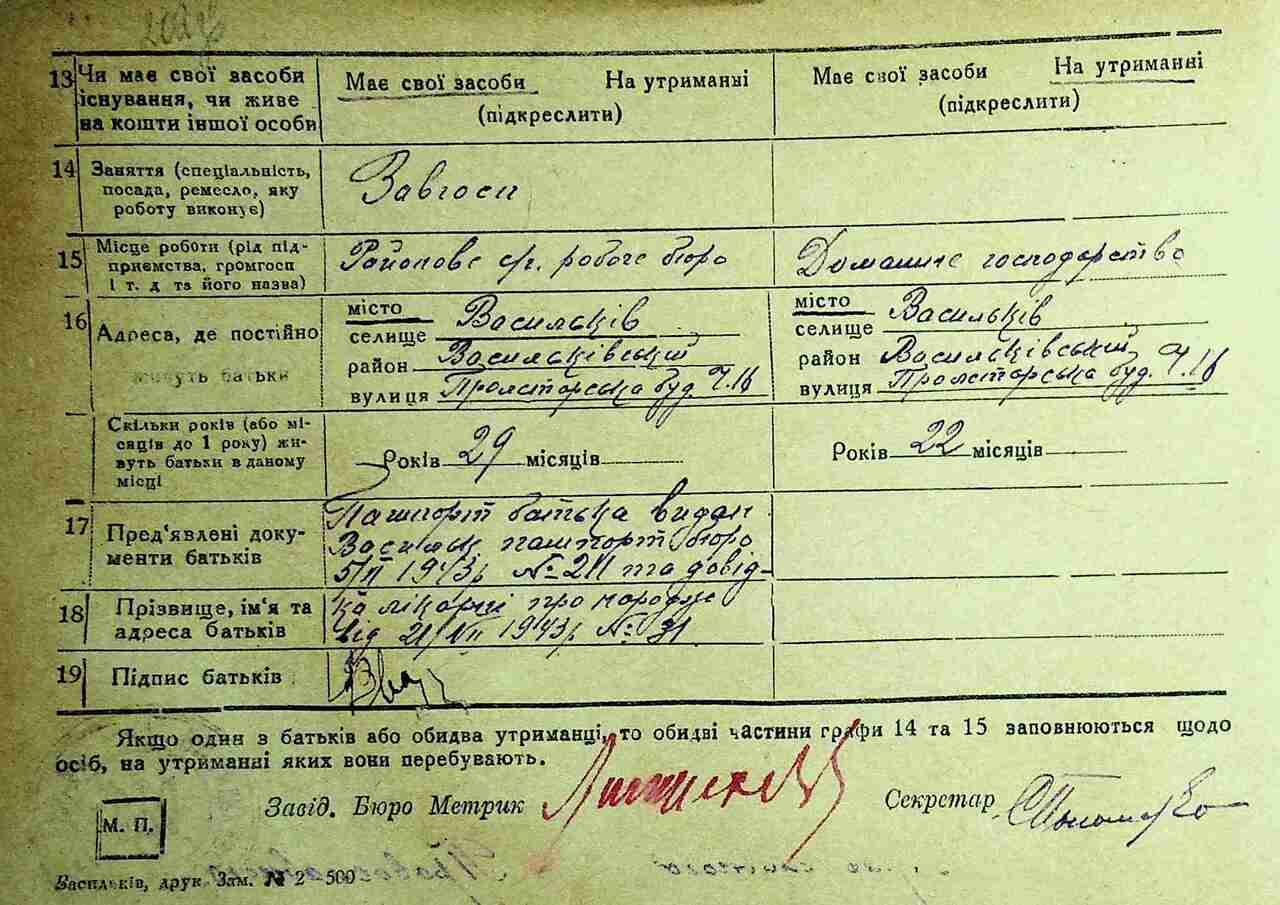 13 Чи має свої засоби існування, чи живе на кошти іншої особи
Має свої засоби На утриманні
(підкреслити)
Має свої засоби На утриманні
(підкреслити)
14 Заняття (спеціальність,
посада, ремесло, яку
роботу виконує)
Завгосп
15 Місце роботи (рід під-
приємства, громгосп
і т. д та його назва)
Районове с/г. робоче бюро
Домашнє господарство
16 Адреса, де постійно
живуть батьки
місто
селище Васильків
район Васильківський
вулиця Пролетарська буд. Ч.
місто
селище Васильків
район Васильківський
вулиця Пролетарська буд. Ч.
Скільки років (або мі-
сяців до 1 року) жи-
вуть батьки в даному
місці
Років 29 місяців
Років 22 місяців
17 Пред'явлені доку-
менти батьків
Пашпорт батька видан
Васильк. пашпорт бюро
5/II 1943р № та довід-
18 Прізвище, ім'я та
адреса батьків
ка лікарні про народж
від 21/VII 1943р № 31
19 Підпис батьків
Якщо один з батьків або обидва утриманці, то обидві частини графи 14 та 15 заповнюються щодо
осіб, на утриманні яких вони перебувають.
Завід. Бюро Метрик
Секретар
М. П.
Васильків, друк. Зам. № 2 500